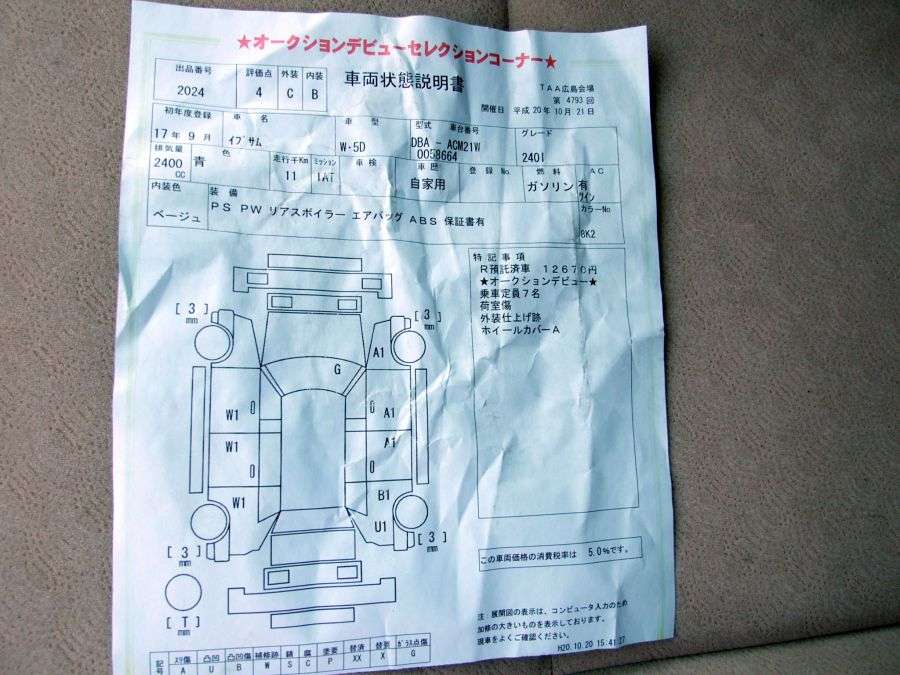 ★オークションデビューセレクションコーナー★
出品番号 評価点 外装 内装 車両状態説明書 TAA広島会場
2024 4 C B 第 4793 回
開催日 平成20年10月21日
初年度登録 車名 車型 型式 車台番号 グレード
17年9月 イプサム W・5D DBA - ACM21W 240I
0058664
排気量 色 走行千Km ミッション 車検 車歴 登録No. 燃料 AC
2400 CC 青 11 IAT 自家用 ガソリン 有
ツイン
内装色 装備 カラーNo
ベージュ PS PW リアスポイラー エアバッグ ABS 保証書有 8K2
特記事項
R預託済車 12670円
★オークションデビュー★
乗車定員7名
荷室傷
外装仕上げ跡
ホイールカバーA
[3] mm
[3] mm
A1
G
W1 A1
W1 A1
W1 B1
U1
[3] mm
[3] mm
[T] mm
この車両価格の消費税率は 5.0%です。
注 展開図の表示は、コンピュータ入力のため
加修の大きいものを表示しております。
現車をよくご確認ください。
H20.10.20 15:41:27
記号 スリ傷 凸凹 凸凹傷 補修跡 錆 腐 塗要 替済 替要 ガラス点傷
A U B W S C P XX X G